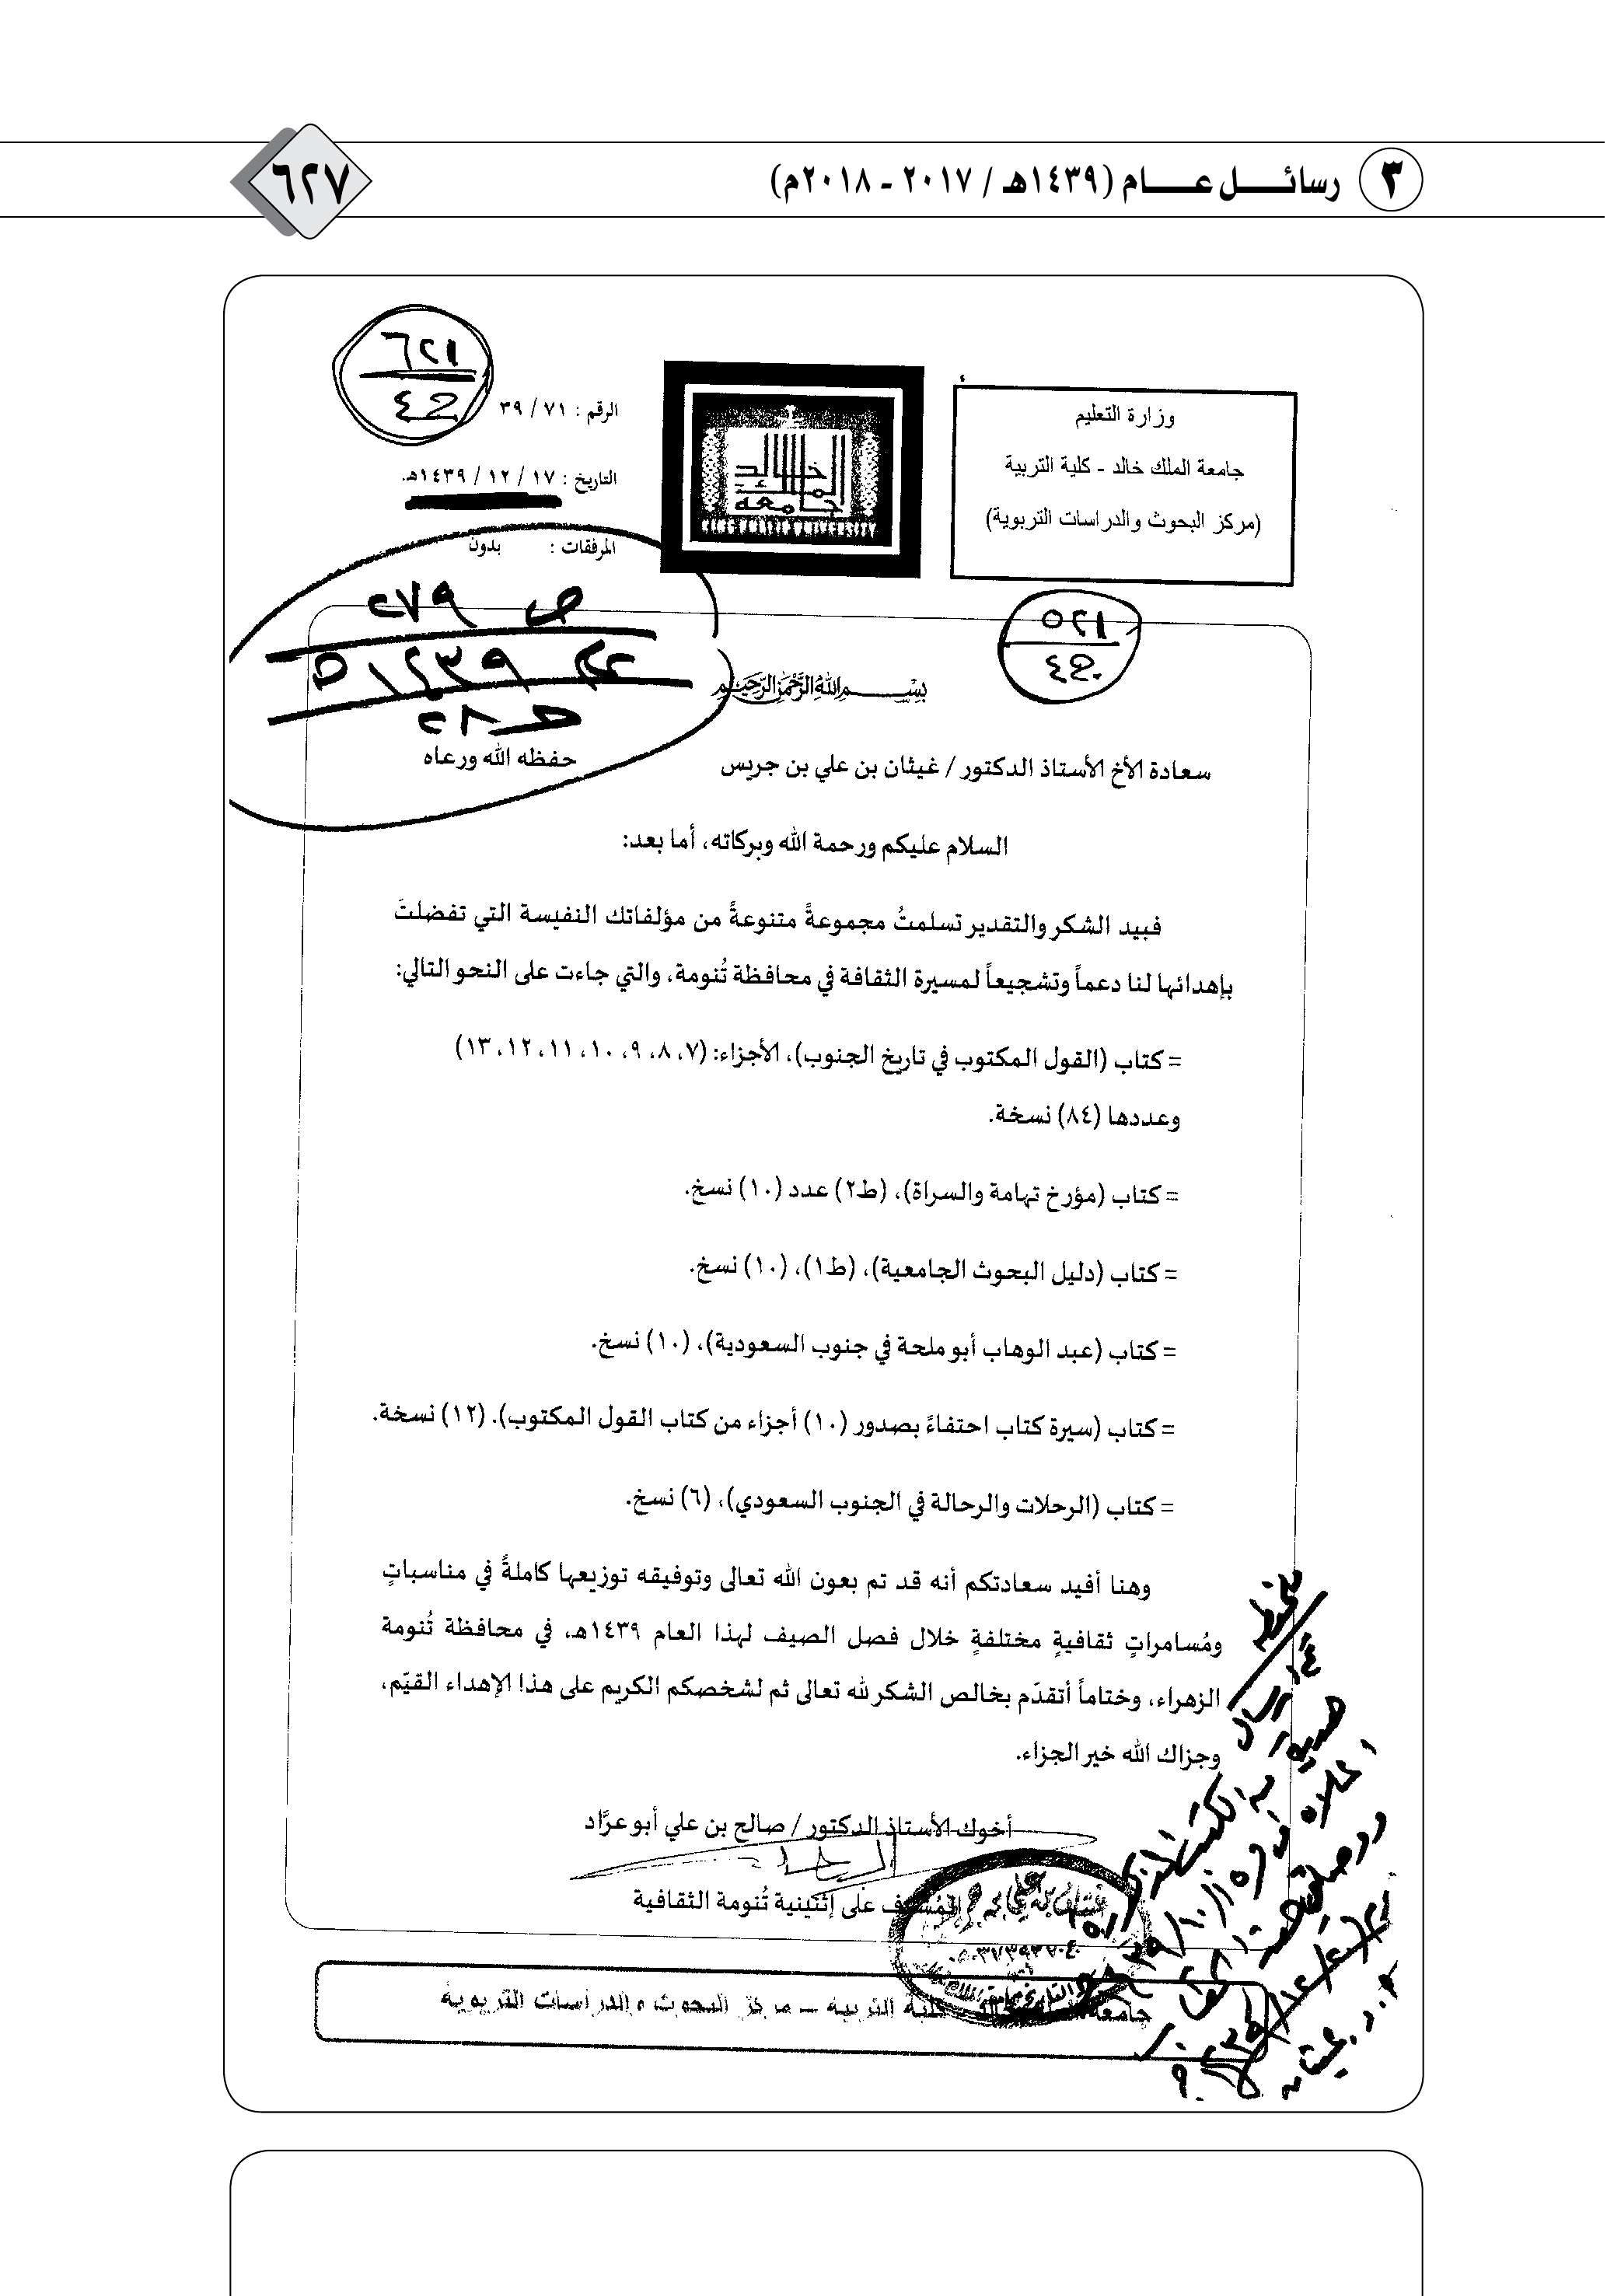 ٣ رسائل عام (١٤٣٩هـ / ٢٠١٧ - ٢٠١٨م)
٦٢٧
وزارة التعليم
جامعة الملك خالد - كلية التربية
(مركز البحوث والدراسات التربوية)
جامعة الملك خالد
KING KHALID UNIVERSITY
الرقم : ٧١ / ٣٩
التاريخ : ١٧ / ١٢ / ١٤٣٩هـ.
المرفقات : بدون
٦٢١
٥٢١
ص ٢٧٩
بسم الله الرحمن الرحيم
سعادة الأخ الأستاذ الدكتور / غيثان بن علي بن جريس حفظه الله ورعاه
السلام عليكم ورحمة الله وبركاته، أما بعد:
فبيد الشكر والتقدير تسلمتُ مجموعةً متنوعةً من مؤلفاتك النفيسة التي تفضلتَ
بإهدائها لنا دعماً وتشجيعاً لمسيرة الثقافة في محافظة تُنومة، والتي جاءت على النحو التالي:
= كتاب (القول المكتوب في تاريخ الجنوب)، الأجزاء: (٧، ٨، ٩، ١٠، ١١، ١٢، ١٣)
وعددها (٨٤) نسخة.
= كتاب (مؤرخ تهامة والسراة)، (ط٢) عدد (١٠) نسخ.
= كتاب (دليل البحوث الجامعية)، (ط١)، (١٠) نسخ.
= كتاب (عبد الوهاب أبو ملحة في جنوب السعودية)، (١٠) نسخ.
= كتاب (سيرة كتاب احتفاءً بصدور (١٠) أجزاء من كتاب القول المكتوب). (١٢) نسخة.
= كتاب (الرحلات والرحالة في الجنوب السعودي)، (٦) نسخ.
وهنا أفيد سعادتكم أنه قد تم بعون الله تعالى وتوفيقه توزيعها كاملةً في مناسباتٍ
ومُسامراتٍ ثقافيةٍ مختلفةٍ خلال فصل الصيف لهذا العام ١٤٣٩هـ، في محافظة تُنومة
الزهراء، وختاماً أتقدّم بخالص الشكر لله تعالى ثم لشخصكم الكريم على هذا الإهداء القيّم،
وجزاك الله خير الجزاء.
أخوك الأستاذ الدكتور / صالح بن علي أبو عرَّاد
المُشرف على إثنينية تُنومة الثقافية
جامعة الملك خالد - كلية التربية – مركز البحوث والدراسات التربوية